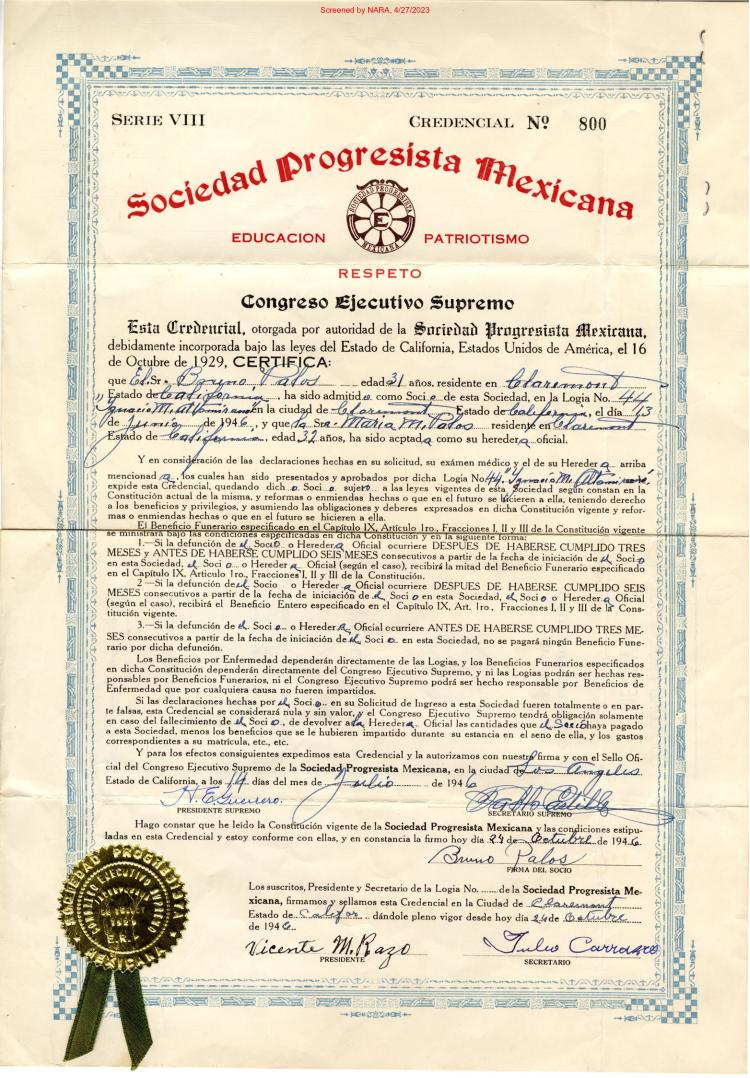 Screened by NARA, 4/27/2023
SERIE VIII CREDENCIAL Nº 800
Sociedad Progresista Mexicana
SOCIEDAD PROGRESISTA MEXICANA E
EDUCACION PATRIOTISMO
RESPETO
Congreso Ejecutivo Supremo
Esta Credencial, otorgada por autoridad de la Sociedad Progresista Mexicana,
debidamente incorporada bajo las leyes del Estado de California, Estados Unidos de América, el 16
de Octubre de 1929, CERTIFICA:
que El Sr. Bruno Palos edad 31 años, residente en Claremont
Estado de California, ha sido admitido como Socio de esta Sociedad, en la Logia No. 44
"Ignacio M. Altamirano" en la ciudad de Claremont Estado de California, el día 13
de Junio de 1946, y que la Sra. Maria M. Palos residente en Claremont
Estado de California, edad 32 años, ha sido acptada como su heredera oficial.
Y en consideración de las declaraciones hechas en su solicitud, su exámen médico y el de su Heredera arriba
mencionada, los cuales han sido presentados y aprobados por dicha Logia No. 44 "Ignacio M. Altamirano"
expide esta Credencial, quedando dicho Socio sujeto a las leyes vigentes de esta Sociedad según constan en la
Constitución actual de la misma, y reformas o enmiendas hechas o que en el futuro se hicieren a ella, teniendo derecho
a los beneficios y privilegios, y asumiendo las obligaciones y deberes expresados en dicha Constitución vigente y refor-
mas o enmiendas hechas o que en el futuro se hicieren a ella.
El Beneficio Funerario especificado en el Capítulo IX, Artículo 1ro., Fracciones I, II y III de la Constitución vigente
se ministrará bajo las condiciones especificadas en dicha Constitución y en la siguiente forma:
1.—Si la defunción de el Socio o Heredera Oficial ocurriere DESPUES DE HABERSE CUMPLIDO TRES
MESES y ANTES DE HABERSE CUMPLIDO SEIS MESES consecutivos a partir de la fecha de iniciación de el Socio
en esta Sociedad, el Socio o Heredera Oficial (según el caso), recibirá la mitad del Beneficio Funerario especificado
en el Capítulo IX, Artículo 1ro., Fracciones I, II y III de la Constitución.
2—Si la defunción de el Socio o Heredera Oficial ocurriere DESPUES DE HABERSE CUMPLIDO SEIS
MESES consecutivos a partir de la fecha de iniciación de el Socio en esta Sociedad, el Socio o Heredera Oficial
(según el caso), recibirá el Beneficio Entero especificado en el Capítulo IX, Art. 1ro., Fracciones I, II y III de la Cons-
titución vigente.
3.—Si la defunción de el Socio o Heredera Oficial ocurriere ANTES DE HABERSE CUMPLIDO TRES ME-
SES consecutivos a partir de la fecha de iniciación de el Socio en esta Sociedad, no se pagará ningún Beneficio Fune-
rario por dicha defunción.
Los Beneficios por Enfermedad dependerán directamente de las Logias, y los Beneficios Funerarios especificados
en dicha Constitución dependerán directamente del Congreso Ejecutivo Supremo, y ni las Logias podrán ser hechas res-
ponsables por Beneficios Funerarios, ni el Congreso Ejecutivo Supremo podrá ser hecho responsable por Beneficios de
Enfermedad que por cualquiera causa no fueren impartidos.
Si las declaraciones hechas por el Socio en su Solicitud de Ingreso a esta Sociedad fueren totalmente o en par-
te falsas, esta Credencial se considerará nula y sin valor, y el Congreso Ejecutivo Supremo tendrá obligación solamente
en caso del fallecimiento de el Socio, de devolver a la Heredera Oficial las cantidades que el Socio haya pagado
a esta Sociedad, menos los beneficios que se le hubieren impartido durante su estancia en el seno de ella, y los gastos
correspondientes a su matrícula, etc., etc.
Y para los efectos consiguientes expedimos esta Credencial y la autorizamos con nuestra firma y con el Sello Ofi-
cial del Congreso Ejecutivo Supremo de la Sociedad Progresista Mexicana, en la ciudad de Los Angeles
Estado de California, a los 14 días del mes de Julio de 1946
H. E. Guerrero.
PRESIDENTE SUPREMO SECRETARIO SUPREMO
Hago constar que he leído la Constitución vigente de la Sociedad Progresista Mexicana y las condiciones estipu-
ladas en esta Credencial y estoy conforme con ellas, y en constancia la firmo hoy día 24 de Octubre de 1946.
Bruno Palos
FIRMA DEL SOCIO
Los suscritos, Presidente y Secretario de la Logia No. de la Sociedad Progresista Me-
xicana, firmamos y sellamos esta Credencial en la Ciudad de Claremont
Estado de Califor. dándole pleno vigor desde hoy día 24 de Octubre
de 1946.
Vicente M. Razo Tulio Carrasco
PRESIDENTE SECRETARIO
SOCIEDAD PROGRESISTA MEXICANA
CONGRESO EJECUTIVO SUPREMO